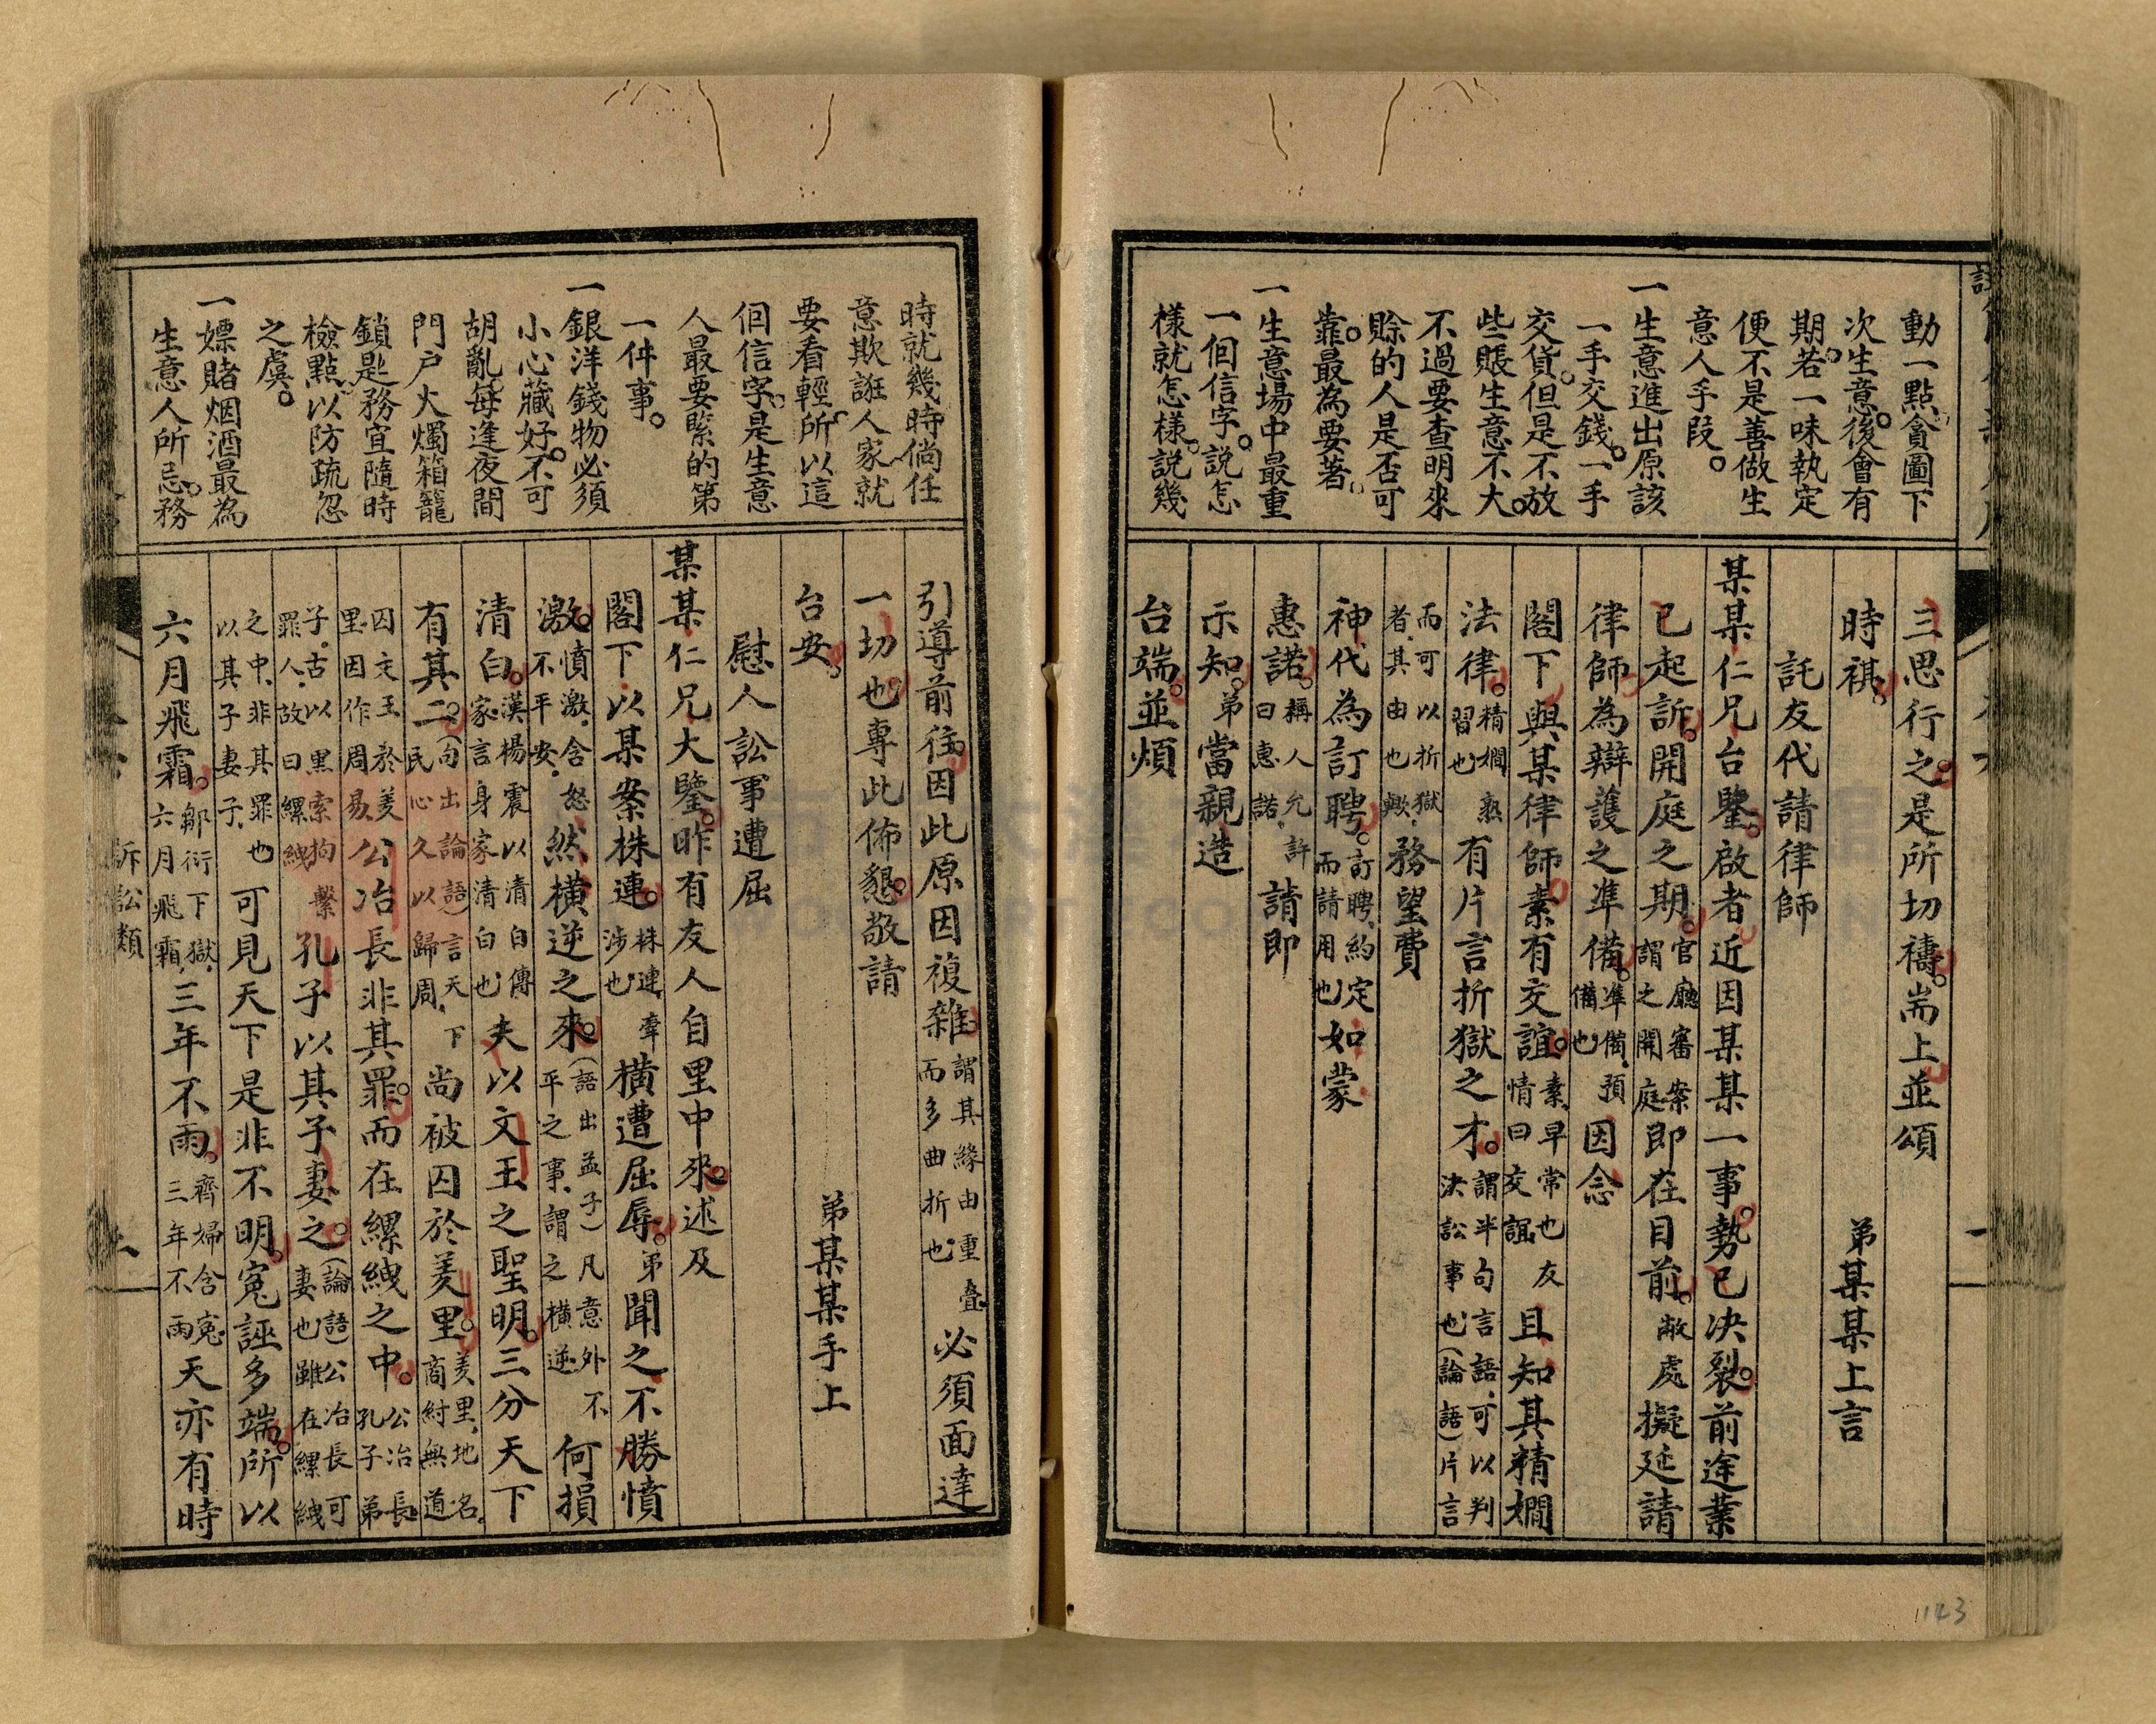 動一點貪圖下
次生意後會有
期若一味執定
便不是善做生
意人手段。
一生意進出原該
一手交錢。一手
交貨。但是不放
些賬生意不大。
不過要查明來
賒的人是否可
靠。最為要著。
一生意場中最重
一個信字。說怎
樣就怎樣。說幾
三思行之。是所切禱。耑上並頌
時祺。 弟某某上言
託友代請律師
某某仁兄台鑒。啟者近因某某一事。勢已決裂。前途業
已起訴。開庭之期。官廳審案謂之開庭即在目前。敝處擬延請
律師為辯護之準備。準備預備也因念
閣下與某律師素有交誼。素早常也友情曰交誼且知其精嫻
法律。精嫻熟習也有片言折獄之才。謂半句言語可以判決訟事也(論語)片言
而可以折獄者其由也歟務望費
神代為訂聘。訂聘約定而請用也如蒙
惠諾。稱人允許曰惠諾請即
示知。弟當親造
台端。並煩
1143
時就幾時倘任
意欺誑人家就
要看輕。所以這
個信字。是生意
人最要緊的第
一件事。
一銀洋錢物必須
小心藏好。不可
胡亂每逢夜間
門户火燭箱籠
鎖匙務宜隨時
檢點。以防疏忽
之虞。
一嫖賭烟酒最為
生意人所忌。務
引導前往。因此原因複雜。謂其緣由重疊而多曲折也必須面達
一切也。專此佈懇。敬請
台安。 弟某某手上
慰人訟事遭屈
某某仁兄大鑒。昨有友人自里中來。述及
閣下以某案株連。株連牽涉也橫遭屈辱。弟聞之不勝憤
激。憤激含怒不平安然橫逆之來。(語出孟子)凡意外不平之事謂之橫逆何損
清白。漢楊震以清白傳家言身家清白也夫以文王之聖明。三分天下
有其二。(句出論語)言天下民心久以歸周尚被囚於羑里。羑里地名商紂無道
囚文王於羑里因作周易公冶長非其罪。而在縲絏之中。公冶長孔子弟
子古以黑索拘繫罪人故曰縲絏孔子以其子妻之。(論語)公冶長可妻也雖在縲絏
之中非其罪也以其子妻子可見天下是非不明。冤誣多端。所以
六月飛霜。鄒衍下獄六月飛霜三年不雨。齊婦含冤三年不雨天亦有時
訴訟類